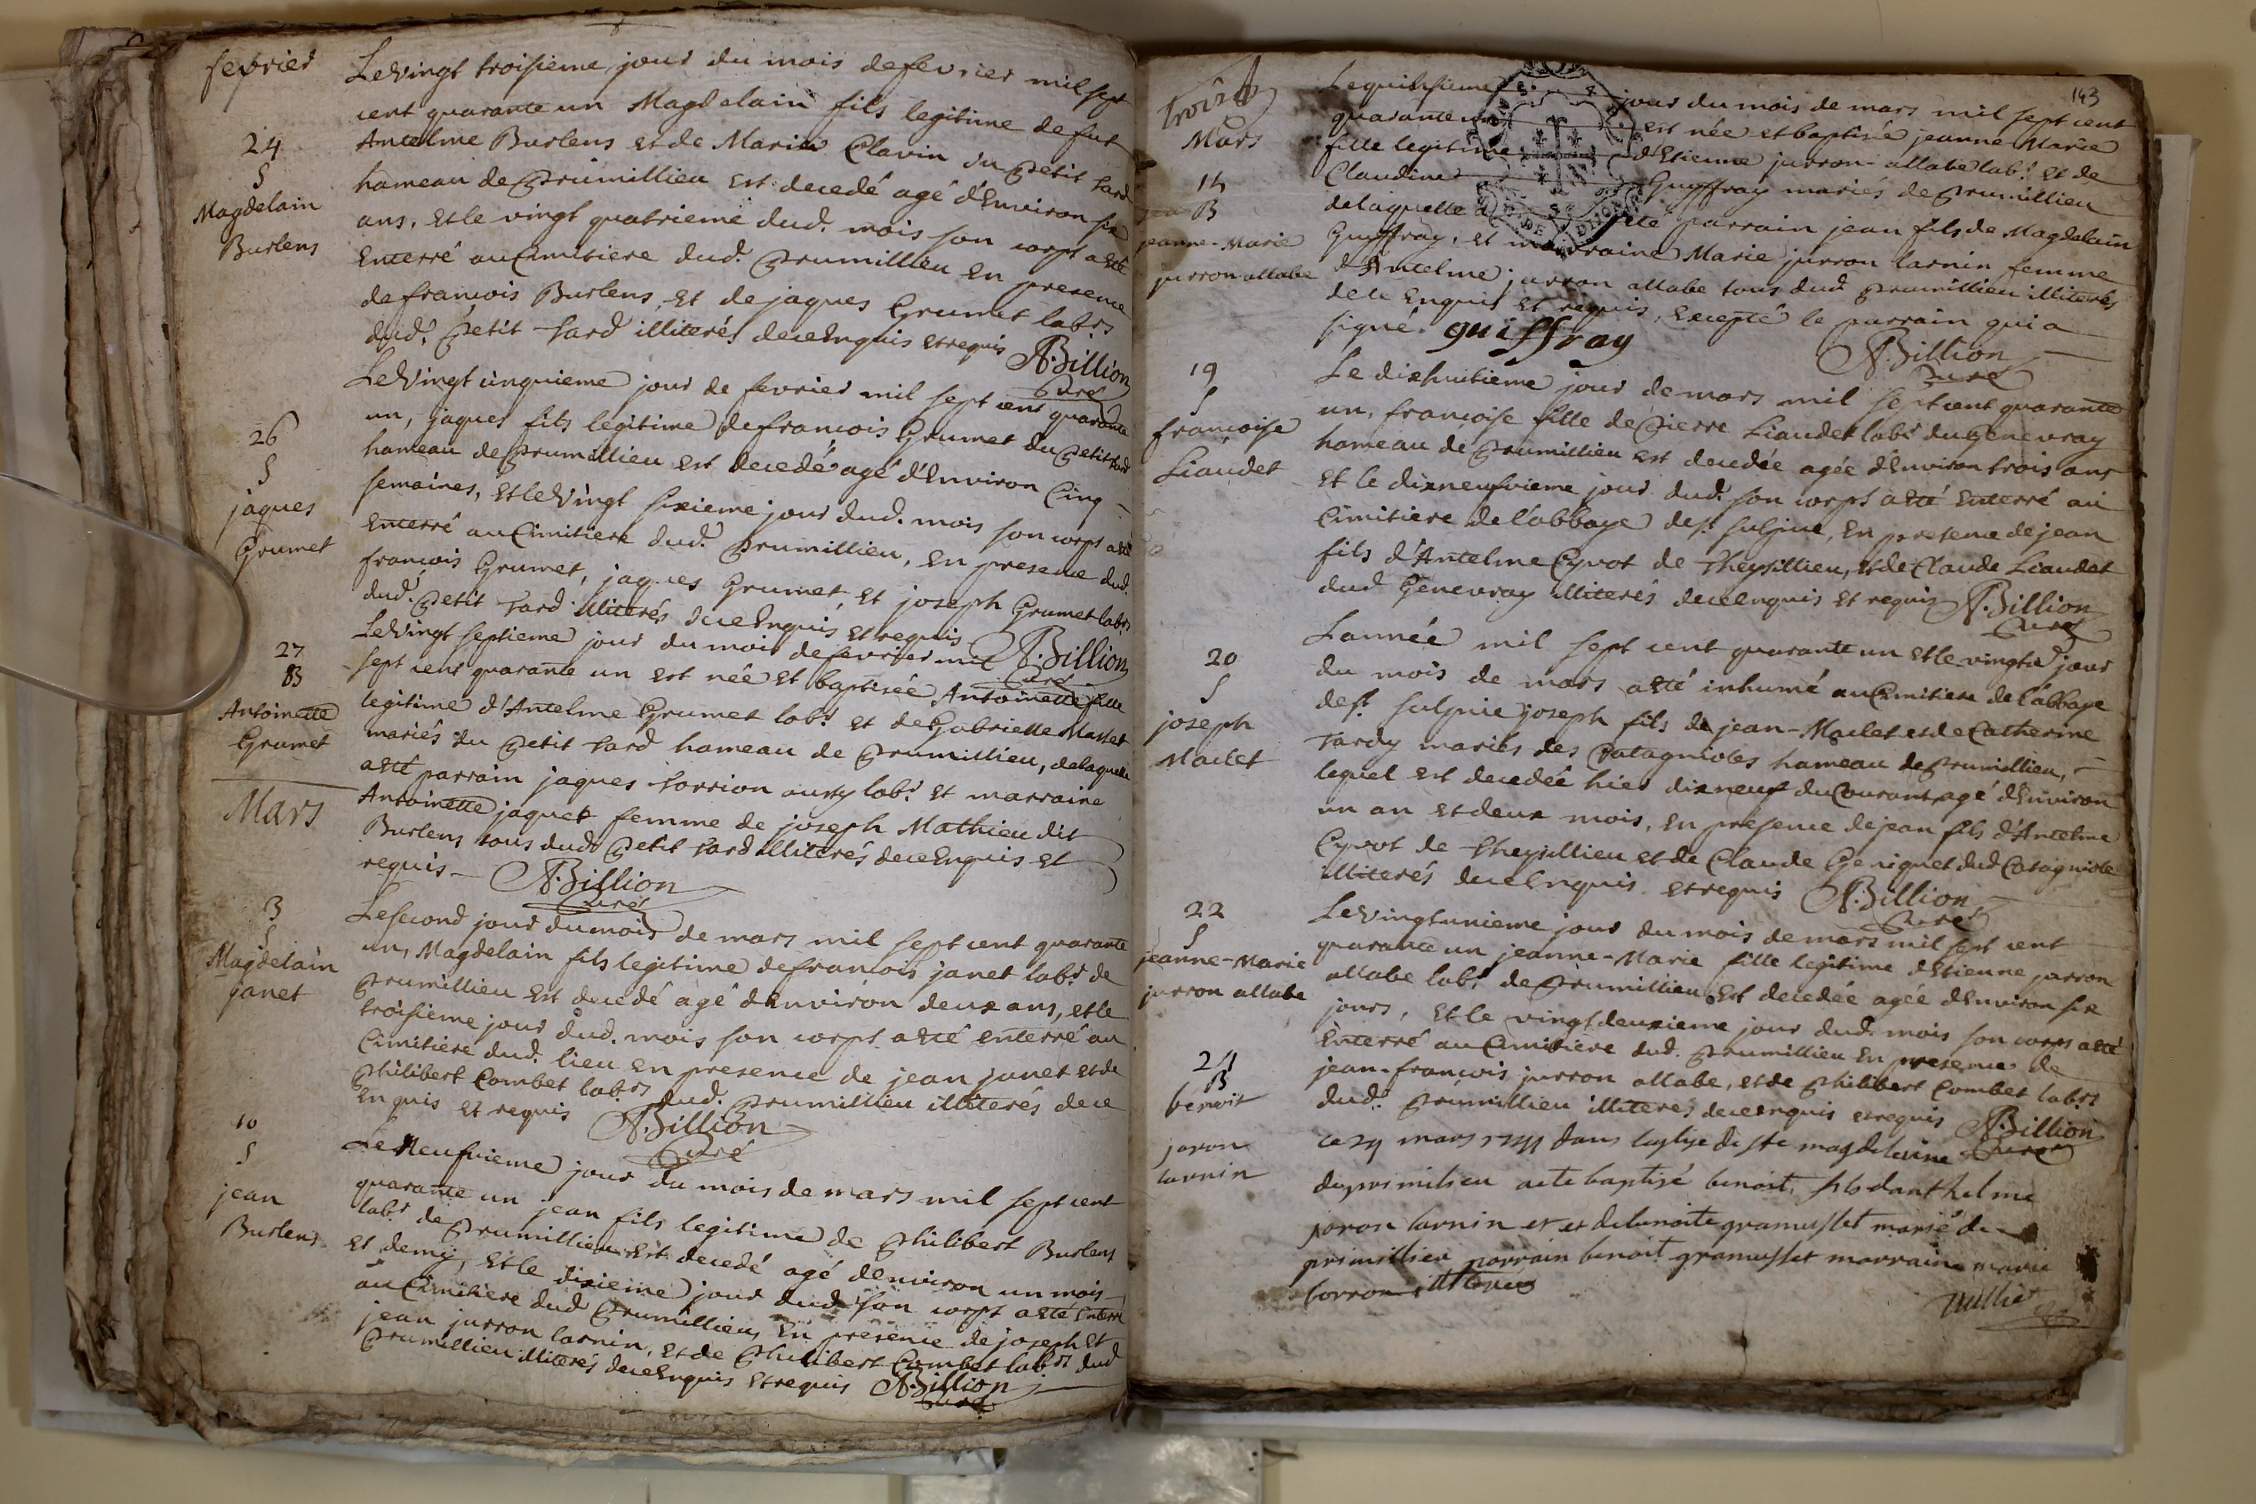 fevrier
Le Vingt troisieme jour du mois de fevrier mil sept
cent quarante un Magdelain fils legitime de fut
Antelme Burlens et de Marie Clavin du Petit
hameau de Prumillieu est decedé agé d'Environ six
ans, et le vingt quatrieme dud. mois son corps a esté
Enterré au Cimitiere dud. Prumillieu en presence
de francois Burlens, et de jaques Grumet labrs
dud. Petit illiterés de ce Enquis et requis A. Billion
Curé
24
S
Magdelain
Burlens
Le Vingt cinquieme jour de fevrier mil sept cent quarante
un, jaques fils legitime de francois Grumet du Petit
hameau de Prumillieu est decedé agé d'Environ Cinq
semaines, et le Vingt sixieme jour dud. mois son corps a esté
Enterré au Cimitiere dud. Prumillieu, en presence dud.
francois Grumet, jaques Grumet, et joseph Grumet labrs
dud. Petit illiterés de ce Enquis et requis A. Billion
Curé
26
S
jaques
Grumet
Le Vingt septieme jour du mois de fevrier mil
sept cent quarante un est née et baptisée Antoinette fille
legitime d'Antelme Grumet labr. et de Gabrielle Masset
mariés du Petit hameau de Prumillieu, de laquelle
a esté parrain jaques labr. et marraine
Antoinette jaquet femme de joseph Mathieu dit
Burlens tous dud. Petit illiterés de ce Enquis et
requis A. Billion
Curé
27
B
Antoinette
Grumet
Mars
Le second jour du mois de mars mil sept cent quarante
un, Magdelain fils legitime de francois janet labr. de
Prumillieu est decedé agé d'Environ deux ans, et le
troisieme jour dud. mois son corps a esté enterré au
Cimitiere dud. lieu en presence de jean janet et de
Philibert Combet labrs dud. Prumillieu illiterés de ce
Enquis et requis A. Billion
Curé
3
S
Magdelain
janet
Le Neufvieme jour du mois de mars mil sept cent
quarante un jean fils legitime de Philibert Burlens
labr. de Prumillieu est decedé agé d'Environ un mois
et demy, et le dixieme jour dud. son corps a esté Enterré
au Cimitiere dud. Prumillieu, En presence de joseph et
jean jurron larnin, et de Philibert Combet labrs dud
Prumillieu illiterés de ce Enquis et requis A. Billion
Curé
10
S
jean
Burlens
143
Mars
Le quinsieme jour du mois de mars mil sept cent
quarante un est née et baptisée jeanne Marie
fille legitime d'Etienne jurron allabe labr. et de
Claudine Guyffray mariés de Prumillieu
de laquelle a esté parrain jean fils de Magdelain
Guyffray, et marraine Marie jurron larnin femme
d'Antelme jurron allabe tous dud. Prumillieu illiterés
de ce Enquis et requis, Excepté le parrain qui a
signé. guiffray A. Billion
Curé
B
jeanne-Marie
jurron allabe
Le dixhuitieme jour de mars mil sept cent quarante
un, francoise fille de Pierre Liaudet labr. du Genevray
hameau de Prumillieu est decedée agée d'Environ trois ans
et le dixneufvieme jour dud. son corps a esté Enterré au
Cimitiere de l'abbaye de st. sulpice, En presence de jean
fils d'Antelme Cyvot de Theysillieu, et de Claude Liaudet
dud Genevray illiterés de ce Enquis et requis A. Billion
Curé
19
S
francoise
Liaudet
L'année mil sept cent quarante un et le vingtie jour
du mois de mars a esté inhumé au Cimitiere de l'abbaye
de st. sulpice joseph fils de jean-Maclet et de Catherine
Tardy mariés des Catagnioles hameau de Prumillieu,
lequel est decedée hier dixneuf du Courant, agé d'Environ
un an et deux mois, en presence de jean fils d'Antelme
Cyvot de Theysillieu et de Claude Geniquet dud Catagniole
illiterés de ce Enquis et requis A. Billion
Curé
20
S
joseph
Maclet
Le Vingtunieme jour du mois de mars mil sept cent
quarante un jeanne-Marie fille legitime d'Etienne jurron
allabe labr. de Prumillieu Est decedée agée d'Environ six
jours, et le vingtdeuxieme jour dud. mois son corps a esté
Enterré au Cimitiere dud. Prumillieu En presence de
jean-francois jurron allabe, et de Philibert Combet labrs
dud. Prumillieu illiterés de ce enquis et requis A. Billion
Curé
22
S
jeanne-Marie
jurron allabe
ce 24 mars 1741 dans leglise de ste magdeleine
de primilieu a ete baptisé benoit, fils danthelme
joron larnin et et de benoite gramusset marié de
primillieu parrain benoit gramusset marraine marie
24
B
benoit
joron
larnin